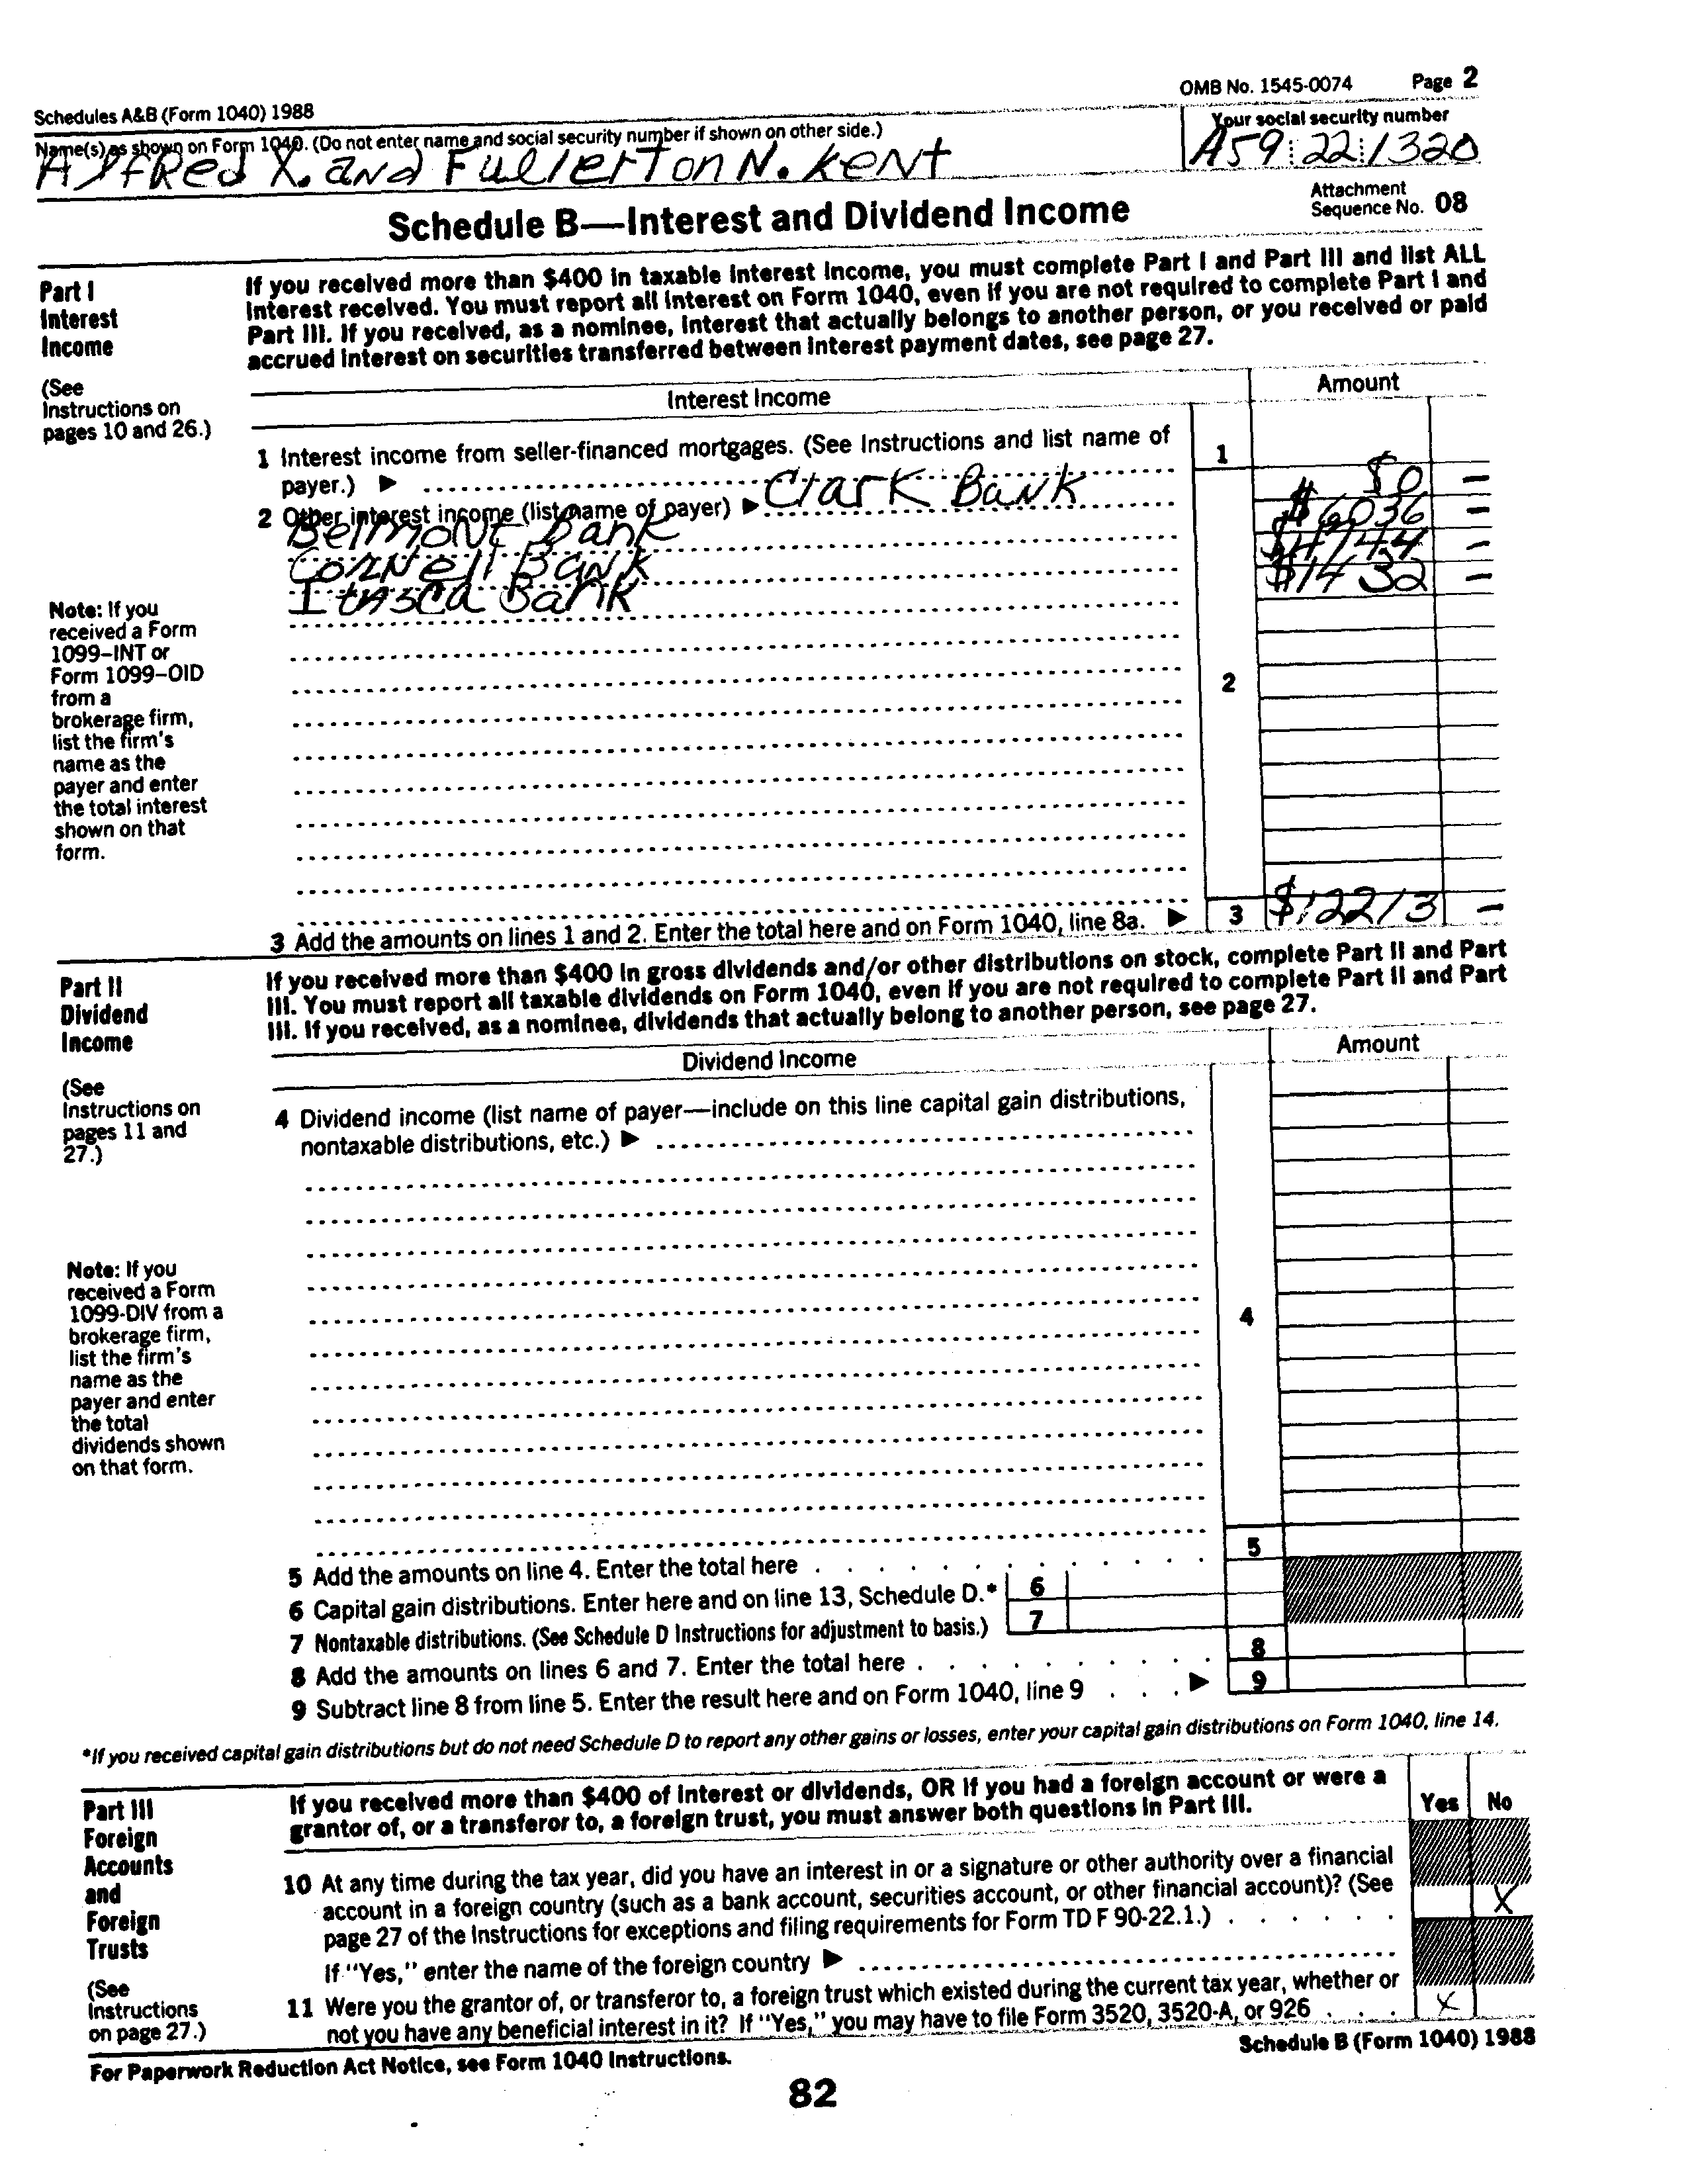 Schedules A&B (Form 1040) 1988
OMB No. 1545-0074 Page 2
Name(s) as shown on Form 1040. (Do not enter name and social security number if shown on other side.)
Your social security number
Alfred X. and Fullerton N. Kent
A59 22 1320
Schedule B—Interest and Dividend Income
Attachment
Sequence No. 08
Part I
Interest
Income
(See
Instructions on
pages 10 and 26.)
If you received more than $400 in taxable interest income, you must complete Part I and Part III and list ALL
interest received. You must report all interest on Form 1040, even if you are not required to complete Part I and
Part III. If you received, as a nominee, interest that actually belongs to another person, or you received or paid
accrued interest on securities transferred between interest payment dates, see page 27.
Interest Income
Amount
1 Interest income from seller-financed mortgages. (See Instructions and list name of
payer.) ▶
1
2 Other interest income (list name of payer) ▶ Clark Bank
Belmont Bank
Cornell Bank
Itasca Bank
$6036 —
—
$1432 —
2
Note: If you
received a Form
1099–INT or
Form 1099–OID
from a
brokerage firm,
list the firm's
name as the
payer and enter
the total interest
shown on that
form.
3 Add the amounts on lines 1 and 2. Enter the total here and on Form 1040, line 8a. ▶ 3 $12213 —
Part II
Dividend
Income
(See
Instructions on
pages 11 and
27.)
If you received more than $400 in gross dividends and/or other distributions on stock, complete Part II and Part
III. You must report all taxable dividends on Form 1040, even if you are not required to complete Part II and Part
III. If you received, as a nominee, dividends that actually belong to another person, see page 27.
Dividend Income
Amount
4 Dividend income (list name of payer—include on this line capital gain distributions,
nontaxable distributions, etc.) ▶
4
Note: If you
received a Form
1099-DIV from a
brokerage firm,
list the firm's
name as the
payer and enter
the total
dividends shown
on that form.
5 Add the amounts on line 4. Enter the total here . . . . . . . . . . 5
6 Capital gain distributions. Enter here and on line 13, Schedule D.* 6
7 Nontaxable distributions. (See Schedule D Instructions for adjustment to basis.) 7
8 Add the amounts on lines 6 and 7. Enter the total here . . . . . . . . . 8
9 Subtract line 8 from line 5. Enter the result here and on Form 1040, line 9 . . . ▶ 9
*If you received capital gain distributions but do not need Schedule D to report any other gains or losses, enter your capital gain distributions on Form 1040, line 14.
Part III
Foreign
Accounts
and
Foreign
Trusts
(See
Instructions
on page 27.)
If you received more than $400 of interest or dividends, OR if you had a foreign account or were a
grantor of, or a transferor to, a foreign trust, you must answer both questions in Part III.
Yes No
10 At any time during the tax year, did you have an interest in or a signature or other authority over a financial
account in a foreign country (such as a bank account, securities account, or other financial account)? (See
page 27 of the Instructions for exceptions and filing requirements for Form TD F 90-22.1.) . . . . . . X
If "Yes," enter the name of the foreign country ▶
11 Were you the grantor of, or transferor to, a foreign trust which existed during the current tax year, whether or
not you have any beneficial interest in it? If "Yes," you may have to file Form 3520, 3520-A, or 926 . . . X
For Paperwork Reduction Act Notice, see Form 1040 Instructions.
Schedule B (Form 1040) 1988
82